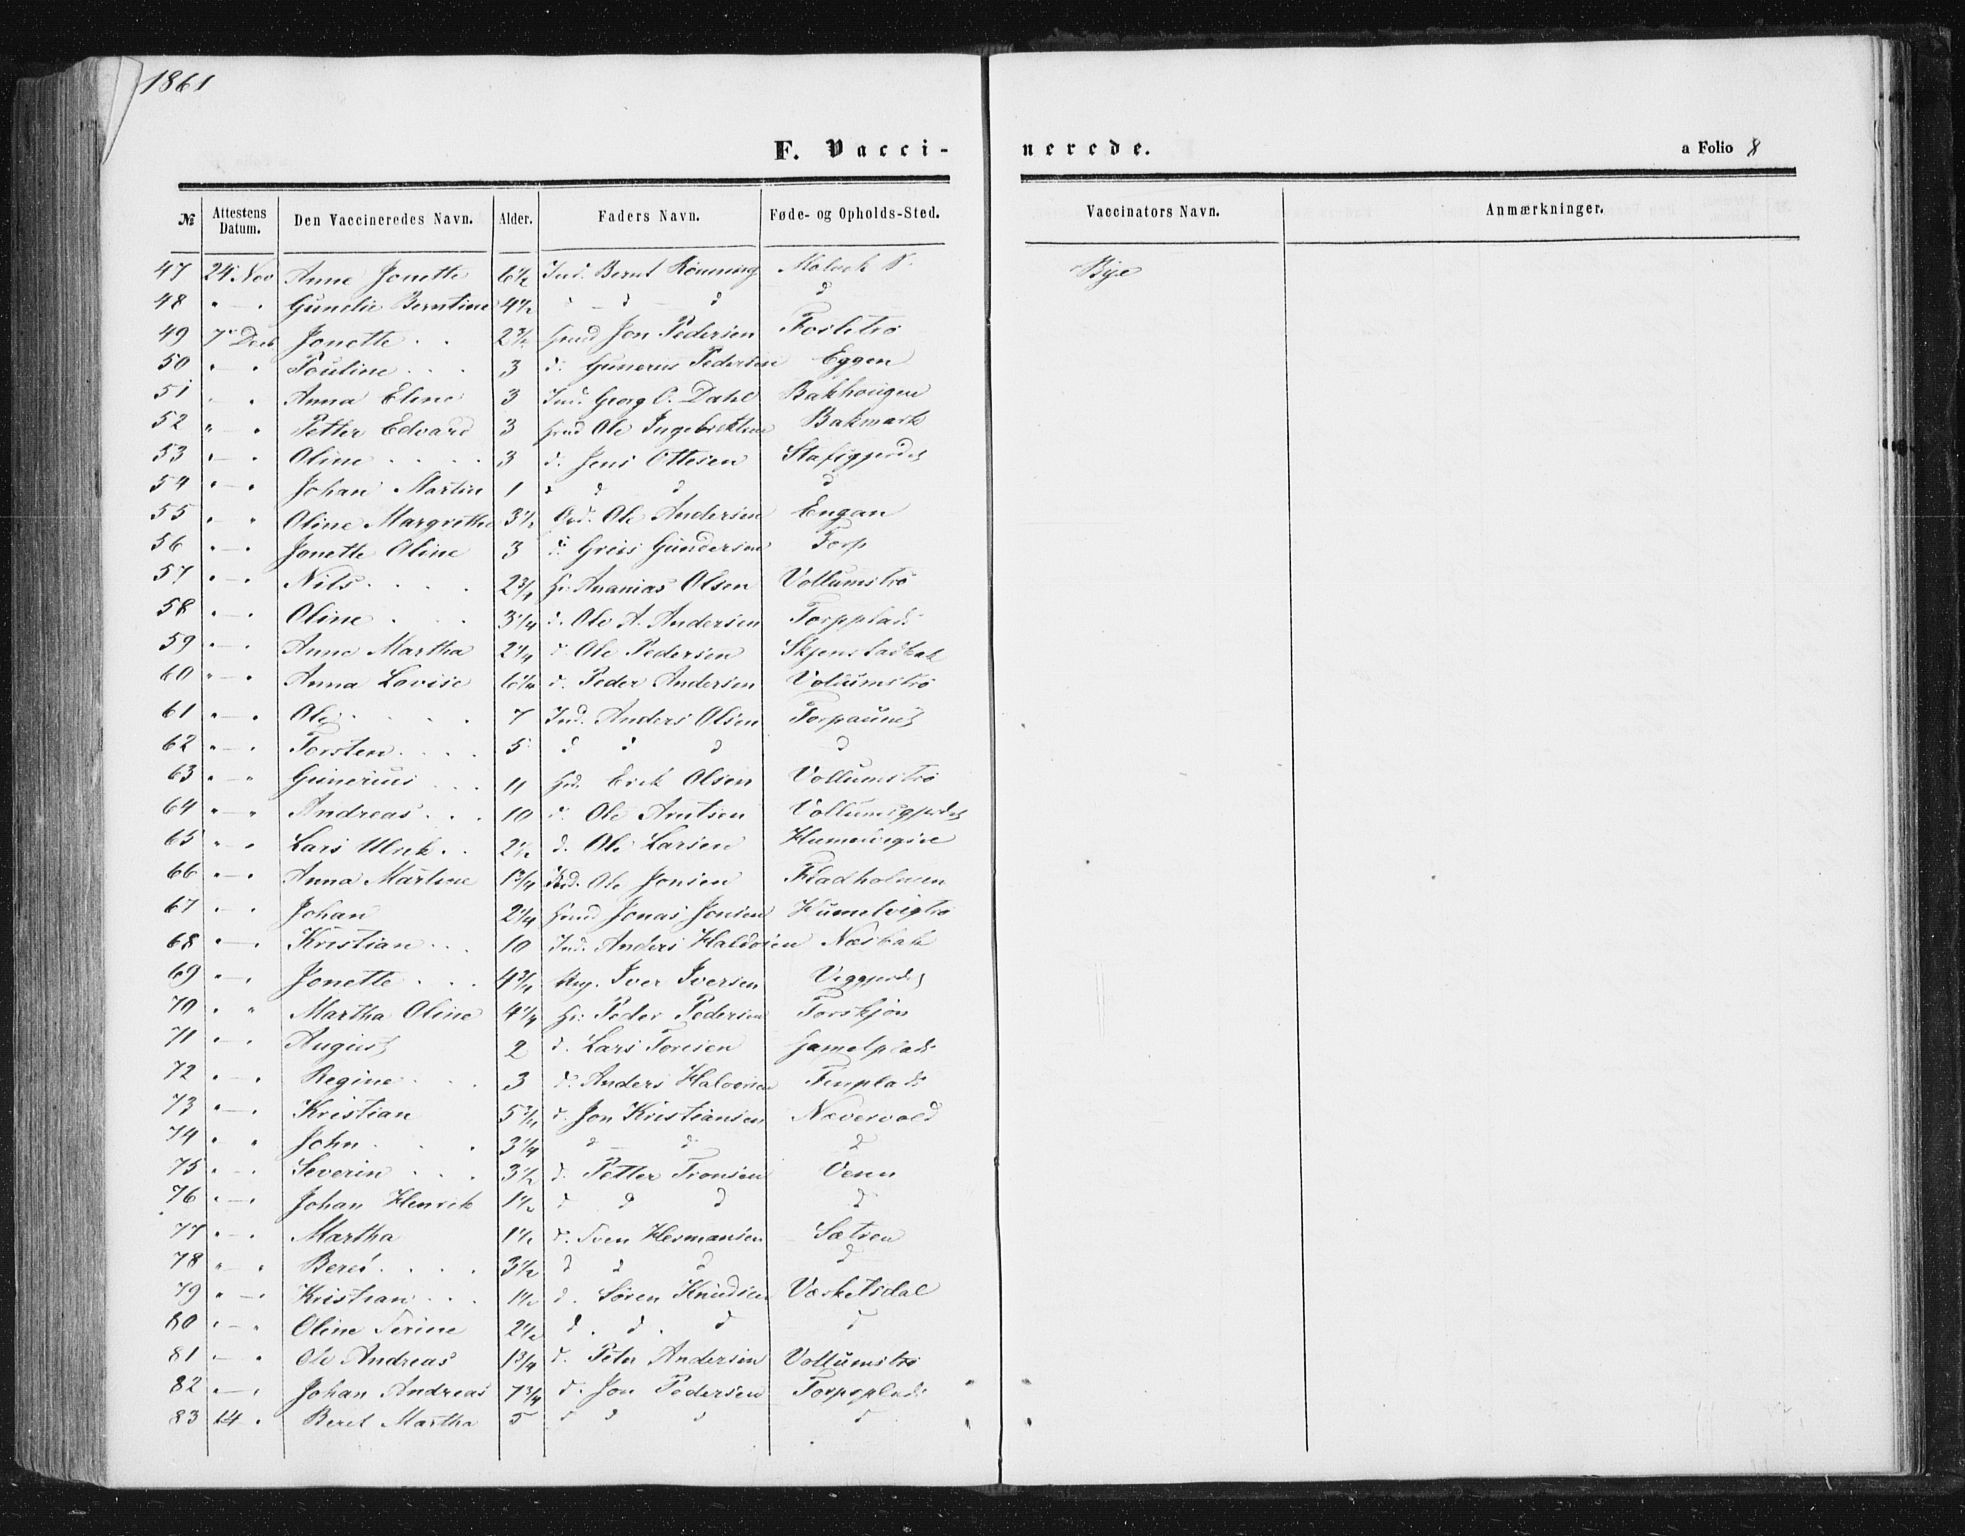 1861
F. Vacci-nerede. a Folio 8
№ Attestens Datum. Den Vaccineredes Navn. Alder. Faders Navn. Føde- og Opholds-Sted. Vaccinators Navn. Anmærkninger.
47 24 Nov Anne Jonette 6½ Ind. Bernt Rönning Malvik S Bye
48 " — " Gunelie Berntine 4½ " — d — d d
49 7 Decb Jonette . . 2¾ Grd Jon Pedersen Fosletrö
50 " " Pouline . . . 3 d. Gunerus Pedersen Eggen
51 " " Anna Eline 3 Ind. Georg P. Dahl Bakhaugen
52 " — " Petter Edvard 3 Grd Ole Ingebrektsen Bakmark
53 " — " Oline . . . . 3 d. Jens Ottesen
54 " — " Johan Martin 1 d d d d
55 " — " Oline Margrethe 3½ Ole Andersen Engan
56 " — " Jonette Oline 3 d. Greis Gundersen Torp
57 " — " Nils . . . . 2¾ Gr Ananias Olsen Vollumströ
58 " — " Oline . . . 3¼ d. Ole A. Andersen Torpplads
59 " — " Anne Martha 2¼ d Ole Pedersen Skjenstadbak
60 " — " Anna Lovise 6¼ d. Peder Andersen Vollumströ
61 " — " Ole . . . . 7 Ind. Anders Olsen Torpaunet
62 " — " Torsten . . . 5 d d d d
63 " — " Gunerius . . . 11 Grd. Erik Olsen Vollumströ
64 " — " Andreas . . . 10 d. Ole Arntsen Vollumsgjerdet
65 " " Lars Ulrik . . 2½ d. Ole Larsen
66 " — " Anna Martine 1¾ Ind. Ole Jonsen Fladholmen
67 " — " Johan 2¼ Grmd Jonas Jonsen Humelvigtrö
68 " — " Kristian . . . 10 Ind. Anders Haldorsen Næsbak
69 " — " Jonette . . . 4¾ Iver Iversen Viggjerdet
70 " " Martha Oline 4¼ Gr: Peder Pedersen Torskjön
71 " — " August 2 d. Lars Toresen Gamelplads
72 " — " Regine . . . 3 d: Anders Halvorsen
73 " — " Kristian 5¾ d. Jon Kristiansen Nævervold
74 " " John . . . 3¼ d — d d
75 " — " Severin . . . 3½ d. Petter Tronsen Venn
76 " — " Johan Henrik 1½ d d d d
77 " — " Martha 1½ d. Sven Hermansen Sætren
78 " " Beret . . . . 3½ d d d d
79 " — " Kristian . . . 1½ d. Sören Knudsen Værketsdal
80 " — " Oline Serine 2½ d . d . d d
81 " — " Ole Andreas 1¾ d. Peter Andersen Vollumströ
82 " — " Johan Andreas 7¾ d. Jon Pedersen Torpsplads
83 14 " Beret Martha 5 d d d d